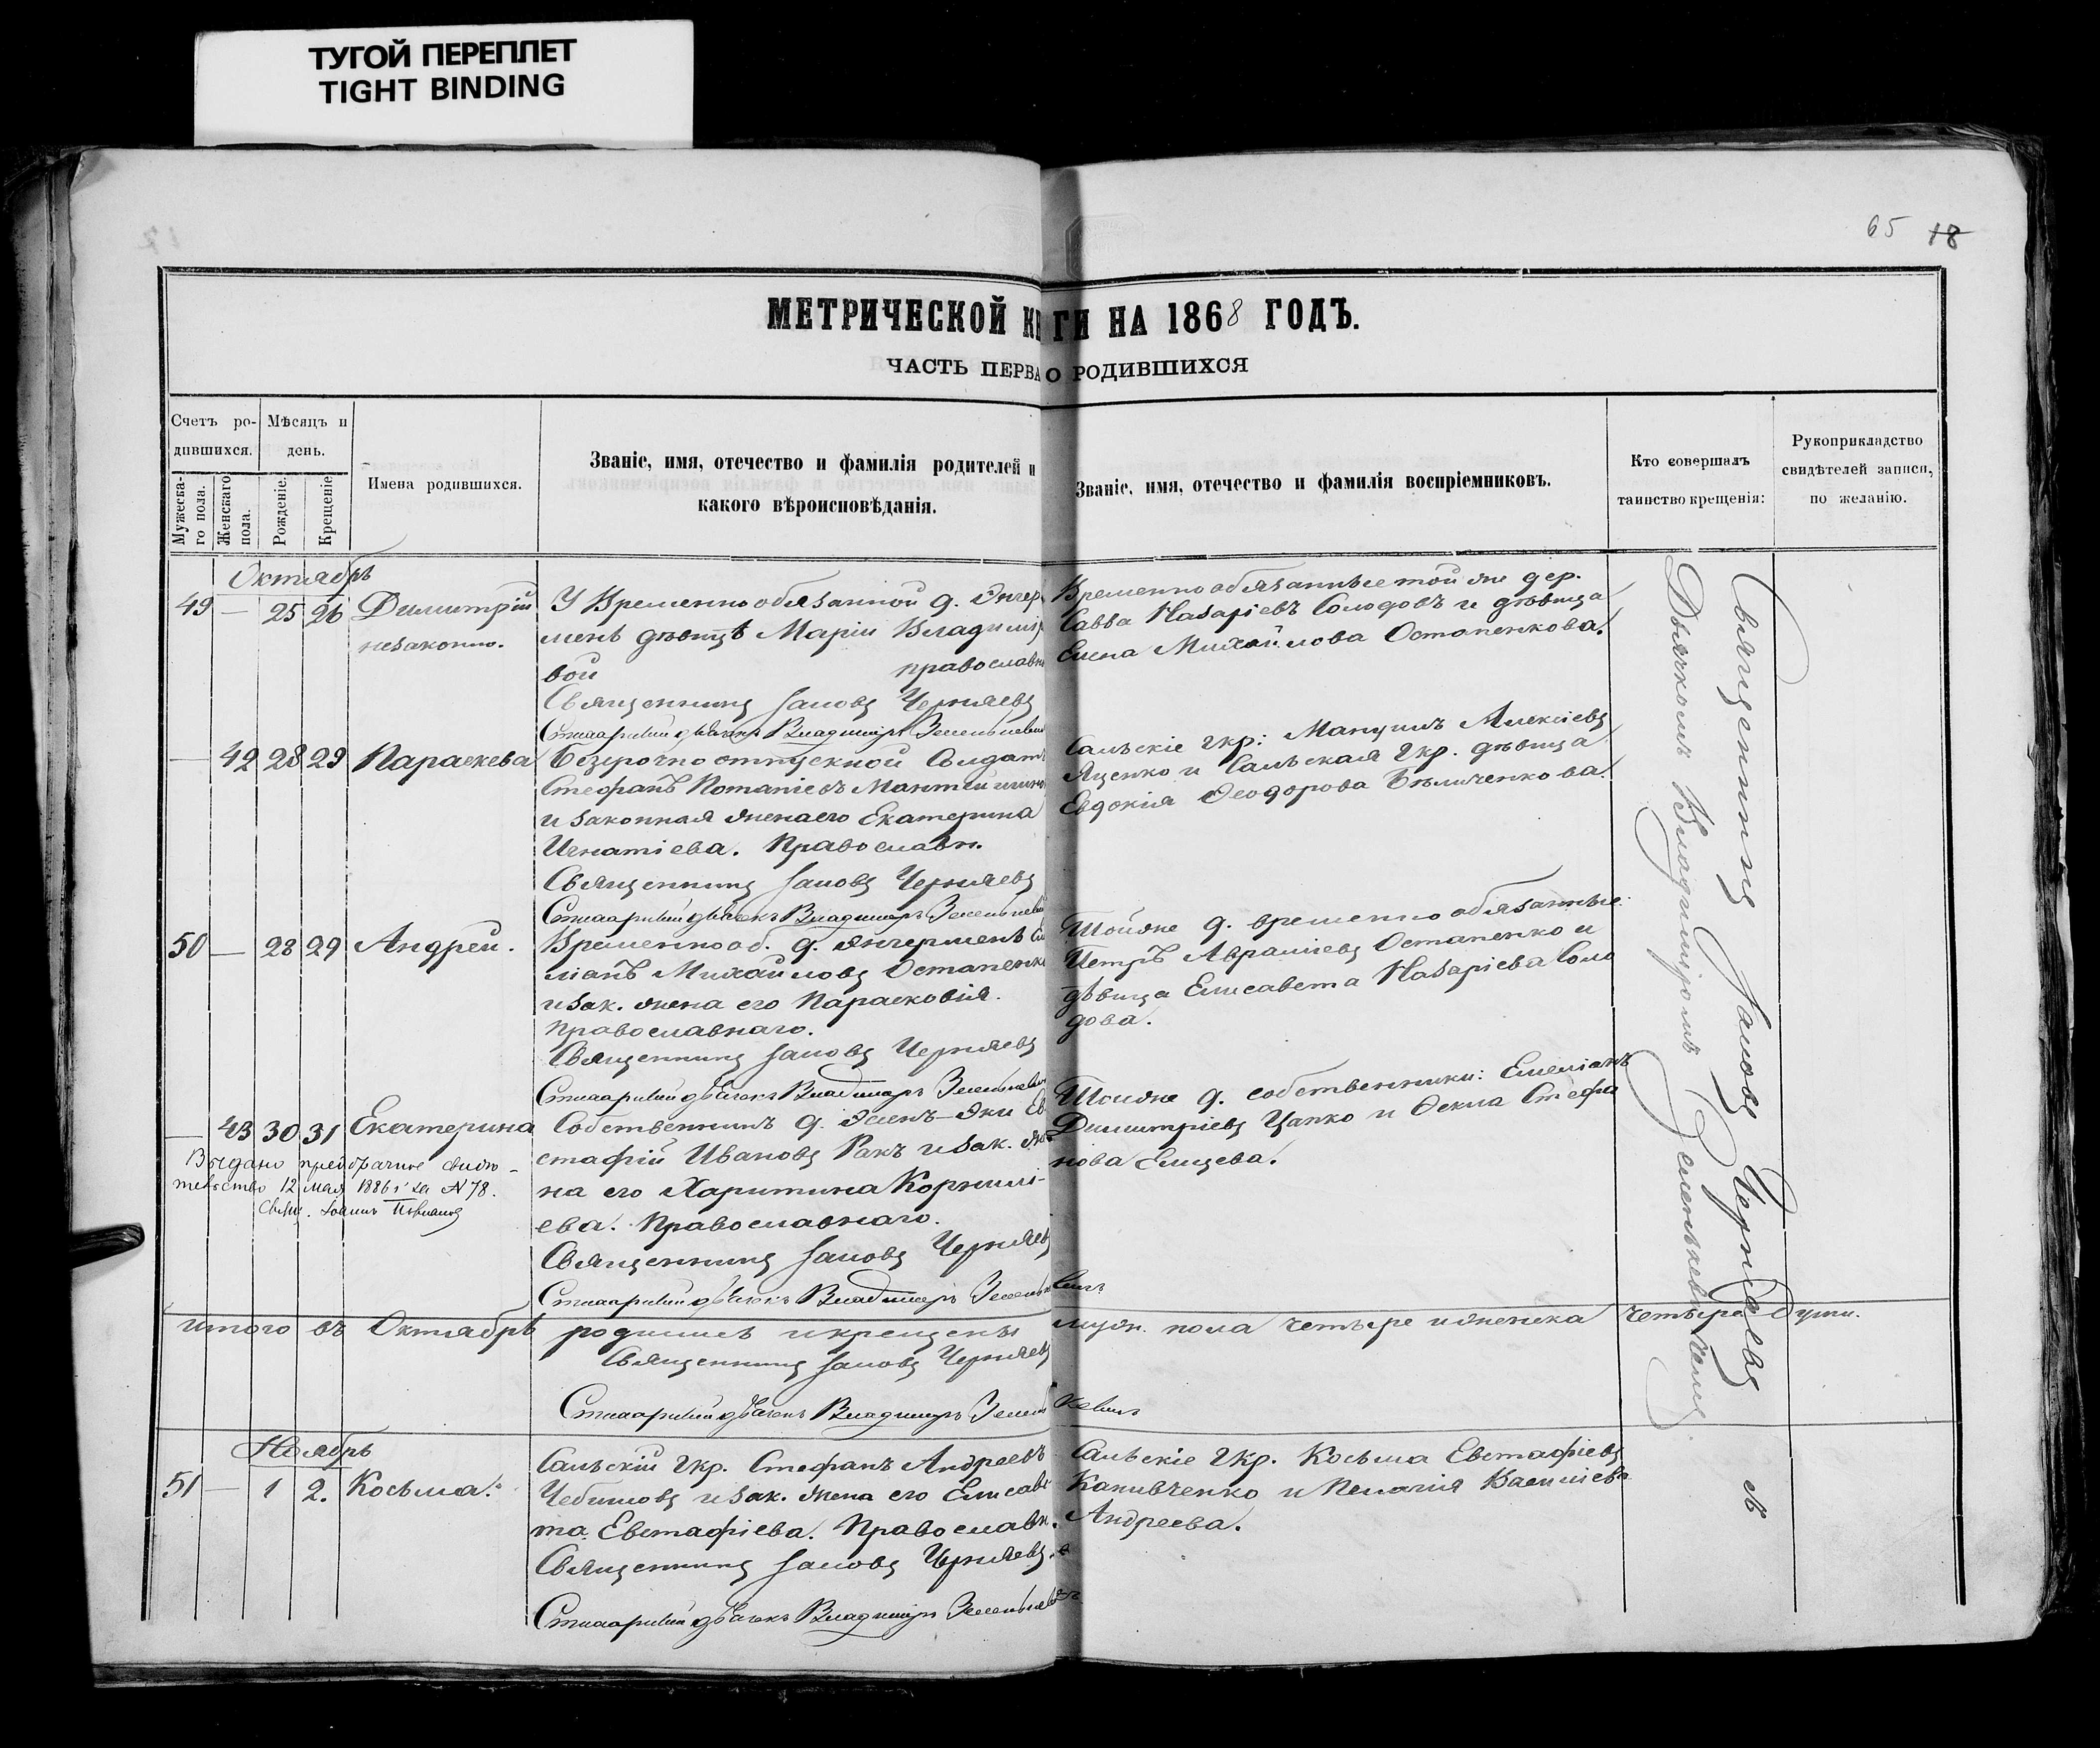 ТУГОЙ ПЕРЕПЛЕТ
TIGHT BINDING
65 18
МЕТРИЧЕСКОЙ КН ГИ НА 1868 ГОДЪ.
ЧАСТЬ ПЕРВА О РОДИВШИХСЯ
Счетъ ро-
дившихся.
Мужеска-
го пола.
Женскаго
пола.
Мѣсяцъ и
день.
Рожденіе.
Крещеніе.
Имена родившихся.
Званіе, имя, отечество и фамилія родителей и
какого вѣроисповѣданія.
Званіе, имя, отечество и фамилія воспріемниковъ.
Кто совершалъ
таинство крещенія:
Рукоприкладство
свидѣтелей записи,
по желанію.
Октябрь
49 — 25 26 Димитрій
незаконно.
У Временнообязанной д. Янчер
менъ дѣвицѣ Маріи Владимір
вой православн
Священникъ Іаковъ Черняевъ
Стихарный дьячекъ Владиміръ Зеленкевич
Временнообязанные той же дер.
Савва Назаріевъ Солодовъ и дѣвица
Елена Михайлова Остапенкова.
— 42 28 29 Параскева
Безсрочноотпускной Солдатъ
Стефанъ
и законная жена его Екатерина
Игнатіева. Православн.
Священникъ Іаковъ Черняевъ
Стихарный дьячекъ Владиміръ Зеленкевич
Сальскіе укр: Мануилъ Алексіевъ
Яценко и Сальская укр. дѣвица
Евдокія Ѳеодорова Бѣличенкова.
50 — 28 29 Андрей.
Временнооб. д. Янчерменъ
Михайловъ Остапенко
и зак. жена его Парасковія.
Православнаго.
Священникъ Іаковъ Черняевъ
Стихарный дьячекъ Владиміръ Зеленкевич
Тойже д. временнообязанные:
Петръ Авраміевъ Остапенко и
дѣвица Елисавета Назаріева Соло
дова.
— 43 30 31 Екатерина
Выдано предбрачное свидѣ-
тельство 12 мая 1886 г за № 78.
Свящ. Іоаннъ
Собственникъ д. Ев
стафій Ивановъ Ракъ и зак. же
на его Харитина Корнилі-
ева. Православнаго.
Священникъ Іаковъ Черняевъ
Стихарный дьячекъ Владиміръ Зеленкевичъ
Тойже д. собственники: Емеліанъ
Димитріевъ Цапко и Ѳекла Стефа
нова Елицева.
Священникъ Іаковъ Черняевъ
Дьячкомъ Владиміромъ Зеленкевичемъ
Итого въ Октябрѣ родились и крещены муж. пола четыре и женска четыре души.
Священникъ Іаковъ Черняевъ
Стихарный дьячекъ Владиміръ Зеленкевичъ
Ноябрь
51 — 1 2. Косьма.
Сальскій укр. Стефанъ Андреевъ
и зак. жена его Елисаве
та Евстафіева. Православн.
Священникъ Іаковъ Черняевъ
Стихарный дьячекъ Владиміръ Зеленкевичъ
Сальскіе укр. Косьма Евстафіевъ
Капивченко и Пелагія Василіева
Андреева.